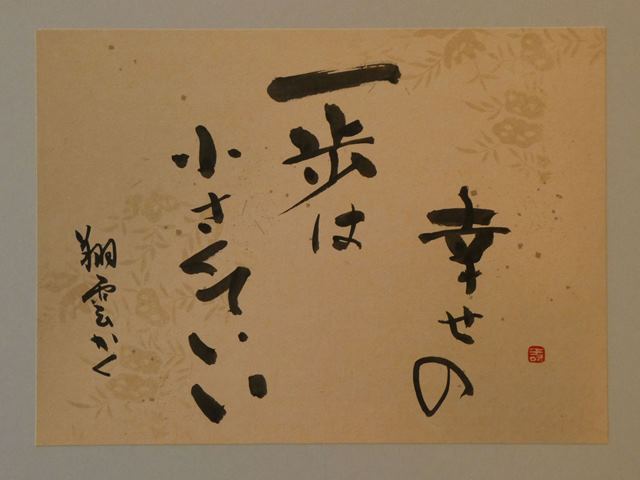 幸せの
一歩は
小さくていい
翔雲かく